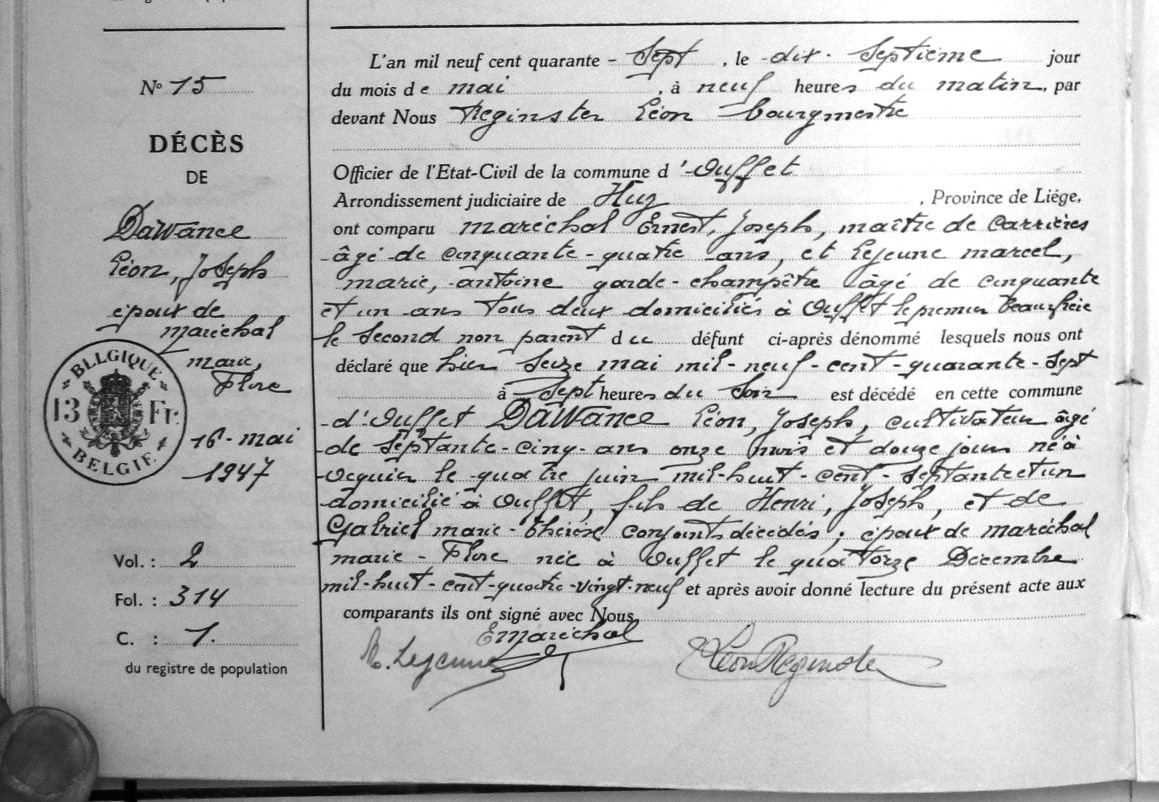 N° 15
DÉCÈS
DE
Dawance
Léon, Joseph
époux de
maréchal
marie,
Flore
BELGIQUE
13 Fr.
BELGIE
16 - mai
1947
Vol. : 2
Fol. : 314
C. : 1.
du registre de population
L'an mil neuf cent quarante - Sept, le -dix- Septième jour
du mois de mai, à neuf heures du matin, par
devant Nous Reginster Léon bourgmestre
Officier de l'Etat-Civil de la commune d'-Ouffet
Arrondissement judiciaire de Huy, Province de Liége,
ont comparu maréchal Ernest, Joseph, maître de Carrières
-âgé-de cinquante-quatre ans, et Lejeune marcel,
marie, -antoine garde-champêtre âgé de cinquante
et un ans tous deux domiciliés à Ouffet le premier beau frère
le second non parent du défunt ci-après dénommé lesquels nous ont
déclaré que hier Seize mai mil-neuf-cent-quarante-sept
à Sept heures du Soir est décédé en cette commune
-d'Ouffet Dawance Léon, Joseph, cultivateur âgé
de Septante-cinq-ans onze mois et douze jours né à
Ocquier le quatre juin mil-huit-cent-septante et un
domicilié à Ouffet, fils de Henri, Joseph, et de
Gabriel marie-Thérèse conjoints décédés ; époux de maréchal
marie-Flore née à Ouffet le quatorze Décembre
mil-huit-cent-quatre-vingt-neuf et après avoir donné lecture du présent acte aux
comparants ils ont signé avec Nous
E Maréchal
M. Lejeune
Léon Reginster